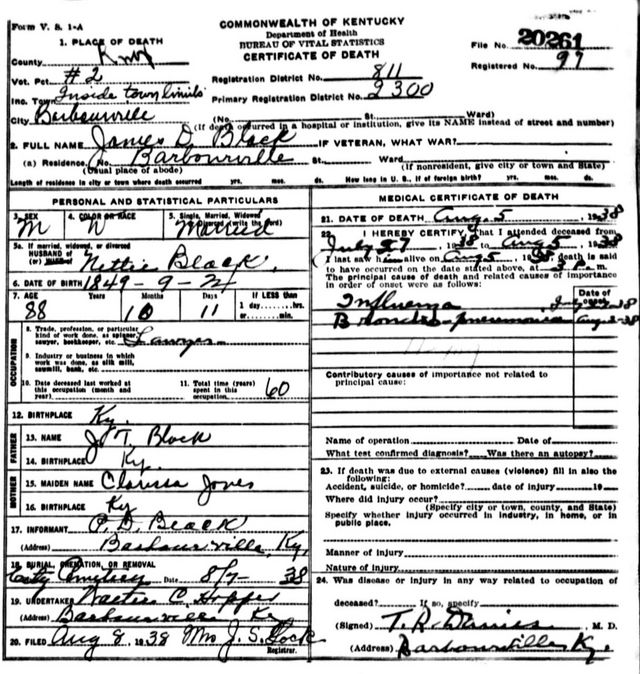 Form V. S. 1-A
COMMONWEALTH OF KENTUCKY
Department of Health
BUREAU OF VITAL STATISTICS
CERTIFICATE OF DEATH
File No. 20261
Registered No. 97
1. PLACE OF DEATH
County Knox
Vot. Pct. #2
Inc. Town Inside town limits
City Barbourville
Registration District No. 811
Primary Registration District No. 2300
(No. St. Ward)
(If death occurred in a hospital or institution, give its NAME instead of street and number)
2. FULL NAME James D. Black IF VETERAN, WHAT WAR?
(a) Residence. No. Barbourville St. Ward
(Usual place of abode) (If nonresident, give city or town and State)
Length of residence in city or town where death occurred yrs. mos. ds. How long in U. S., if of foreign birth? yrs. mos. ds.
PERSONAL AND STATISTICAL PARTICULARS
3. SEX M
4. COLOR OR RACE W
5. Single, Married, Widowed or Divorced (write the word) Married
5a. If married, widowed, or divorced
HUSBAND of
(or) WIFE of Nettie Black
6. DATE OF BIRTH 1849-9-24
7. AGE Years Months Days IF LESS than
88 10 11 1 day, hrs.
or min.
OCCUPATION
8. Trade, profession, or particular
kind of work done, as spinner,
sawyer, bookkeeper, etc. Lawyer
9. Industry or business in which
work was done, as silk mill,
sawmill, bank, etc.
10. Date deceased last worked at
this occupation (month and
year)
11. Total time (years)
spent in this
occupation. 60
12. BIRTHPLACE Ky.
FATHER
13. NAME J. T. Black
14. BIRTHPLACE Ky.
MOTHER
15. MAIDEN NAME Clarissa Jones
16. BIRTHPLACE Ky
17. INFORMANT P. D. Black
(Address) Barbourville, Ky.
18. BURIAL, CREMATION, OR REMOVAL
City Cemetery Date 8/7- 38
19. UNDERTAKER Walter C. Hopper
Barbourville Ky
20. FILED Aug 8, 1938 Mrs J. S. Lock
Registrar.
MEDICAL CERTIFICATE OF DEATH
21. DATE OF DEATH Aug. 5, 1938
22. I HEREBY CERTIFY, That I attended deceased from
July 27, 1938 to Aug 5, 1938
I last saw him alive on Aug 5, 1938 death is said
to have occurred on the date stated above, at 3 P. m.
The principal cause of death and related causes of importance
in order of onset were as follows:
Date of
Influenza
Broncho-pneumonia
Contributory causes of importance not related to
principal cause:
Name of operation Date of
What test confirmed diagnosis? Was there an autopsy?
23. If death was due to external causes (violence) fill in also the
following:
Accident, suicide, or homicide? date of injury 19
Where did injury occur?
(Specify city or town, county, and State)
Specify whether injury occurred in industry, in home, or in
public place.
Manner of injury
Nature of injury
24. Was disease or injury in any way related to occupation of
deceased? If so, specify
(Signed) T. R. Davies, M. D.
(Address) Barbourville Ky.